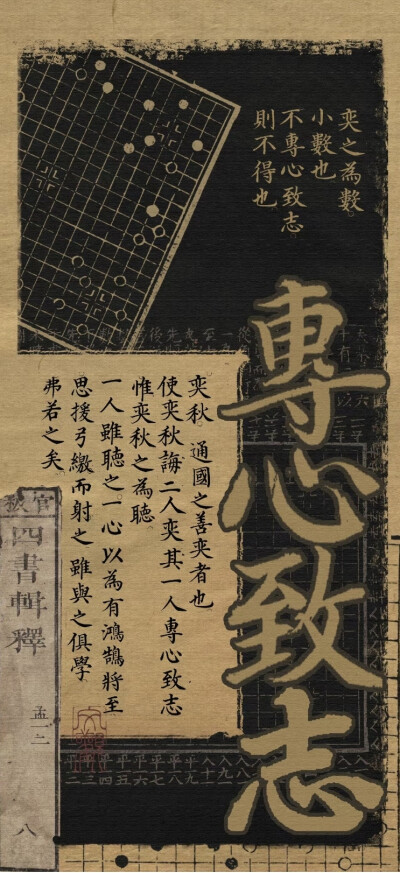 奕之為數
小數也
不專心致志
則不得也
專心致志
奕秋 通國之善奕者也
使奕秋誨二人奕其一人專心致志
惟奕秋之為聽
一人雖聽之一心以為有鴻鵠將至
思援弓繳而射之 雖與之俱學
弗若之矣
官板
四書輯釋
孟二
八